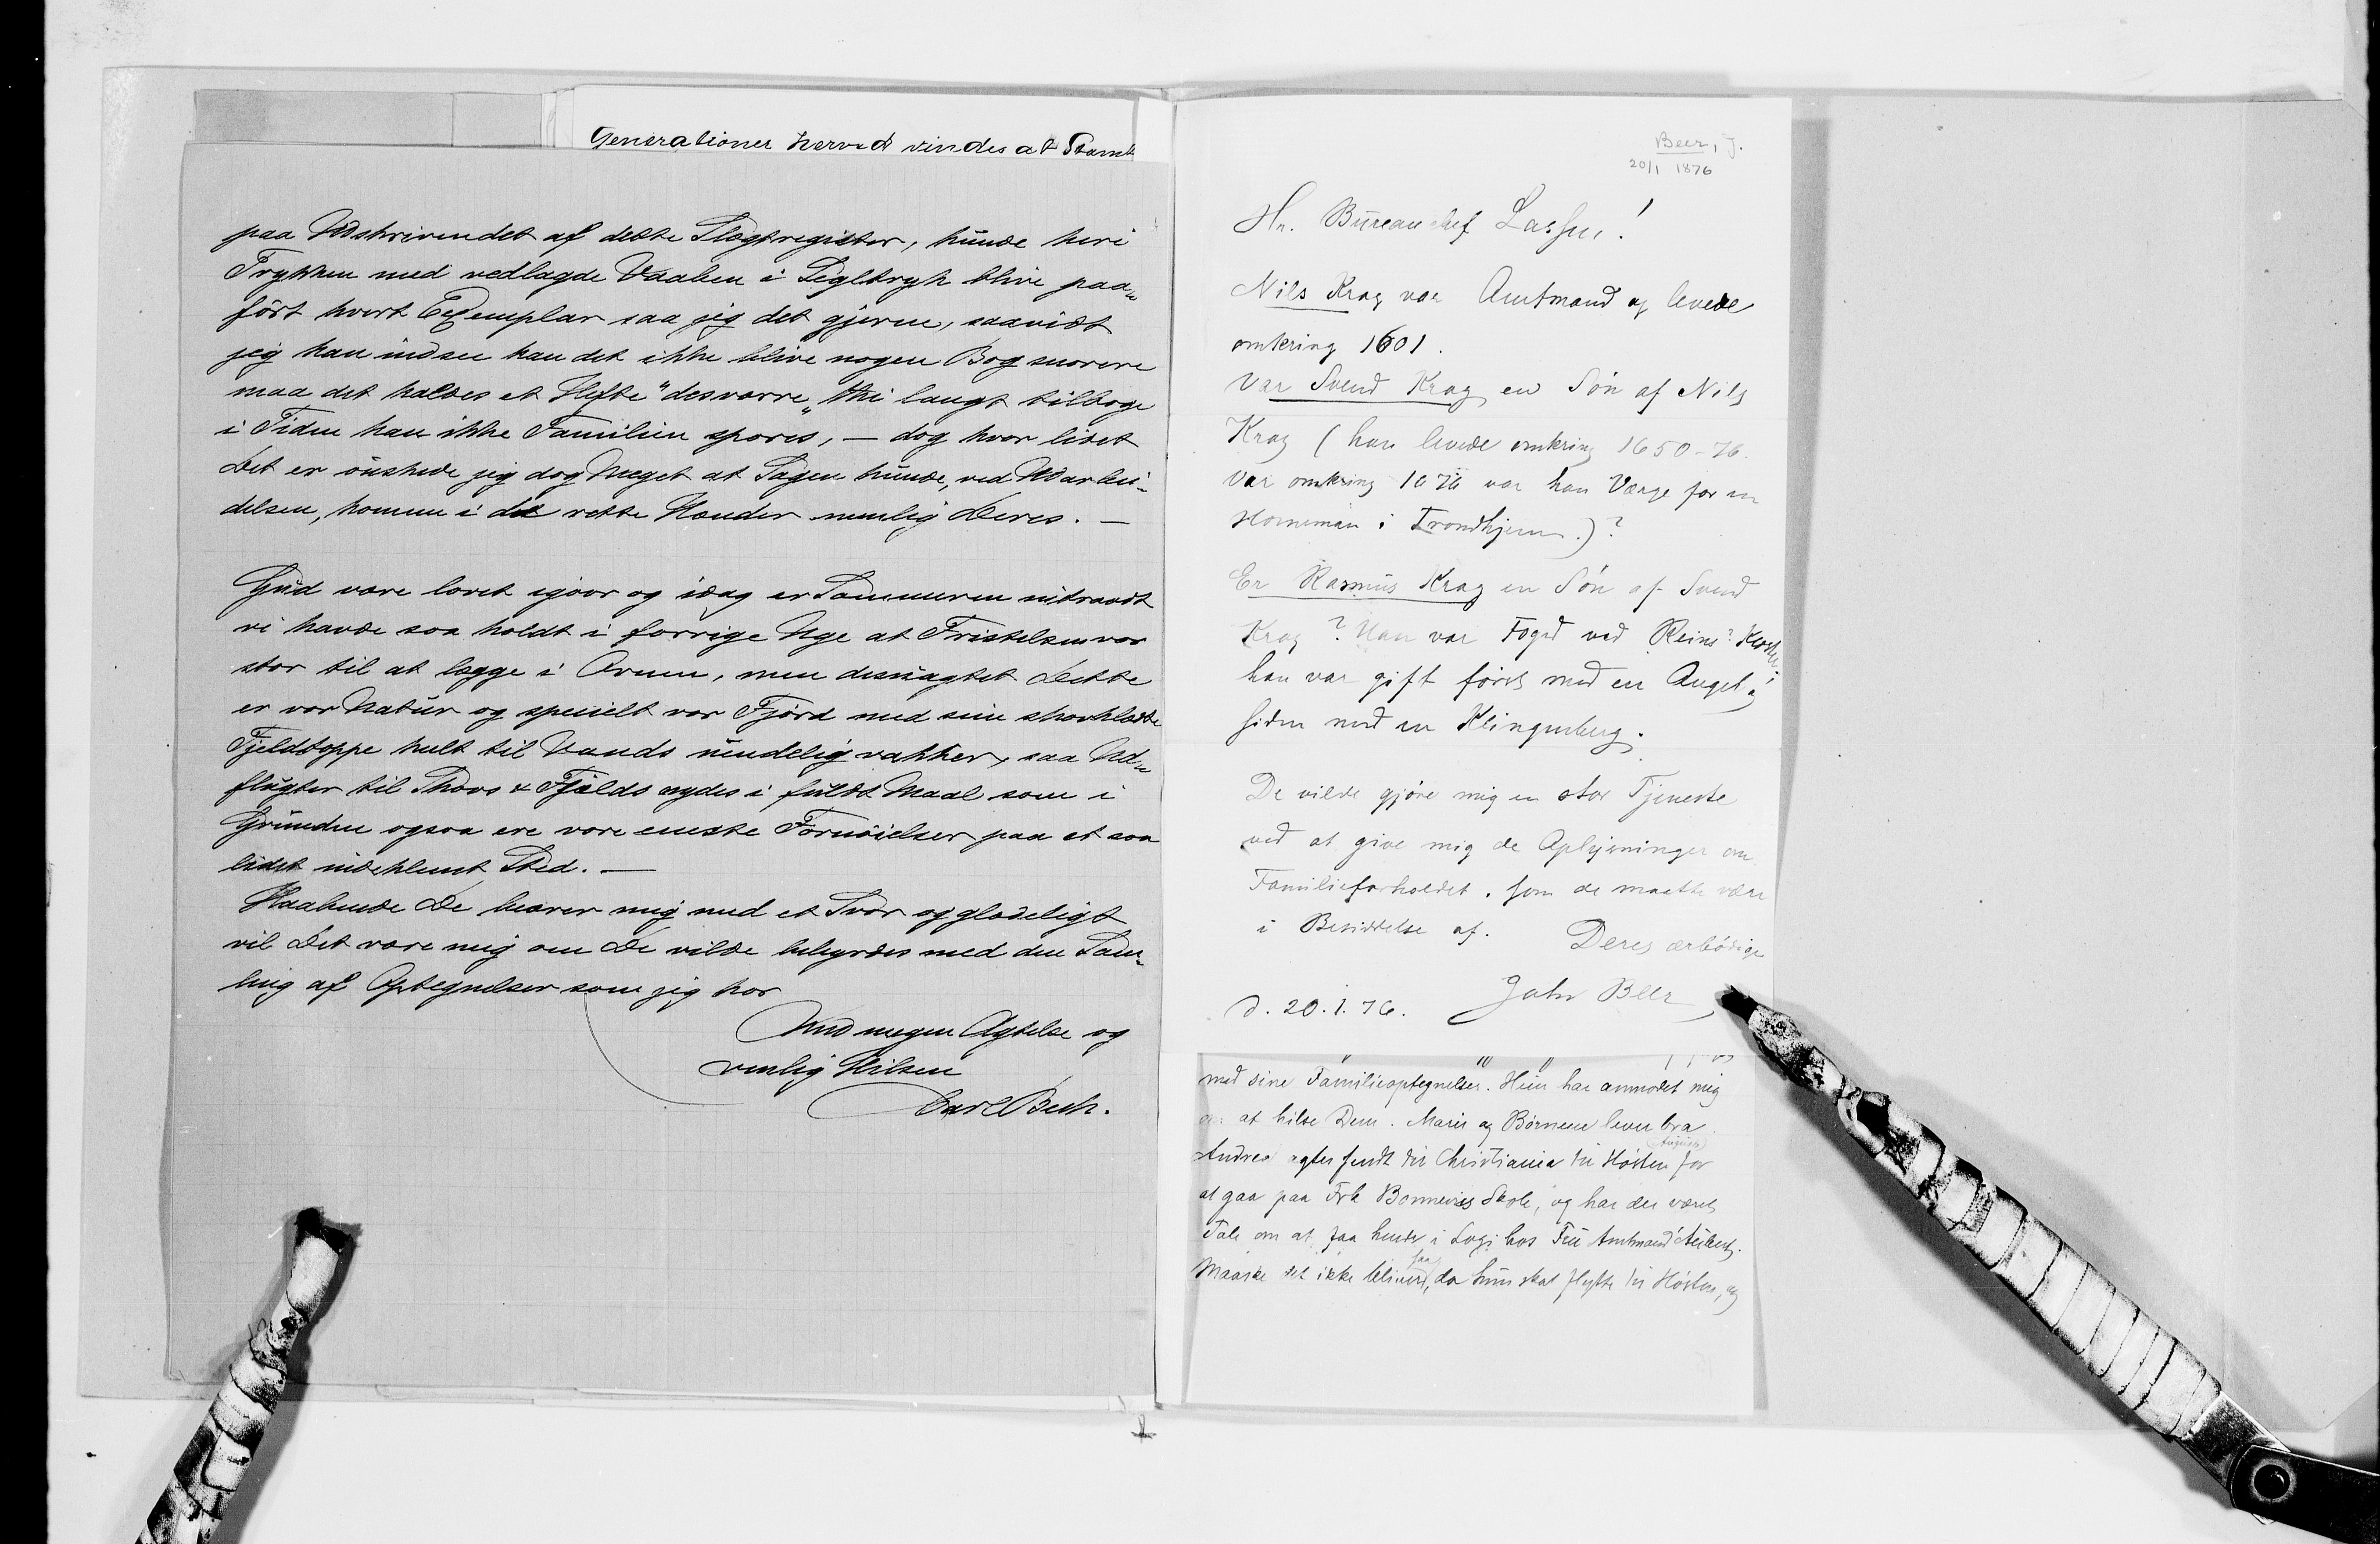 Generationer herved vindes at Stamt
paa Udskrivendet af dette Slægtregister, kunde heri
Trykken med vedlagde Vaaben i Segltryk blive paa„
fört hvert Exemplar saa jeg det gjerne, saavidt
jeg kan indsee kan det ikke blive nogen Bog snarere
maa det kaldes et Hefte" desværre, thi langt tilbage
i Tiden kan ikke Familien spores, — dog hvor lidet
Det er önskede jeg dog Meget at Sagen kunde, ved Udarbei-
delsen, komme i de rette Hænder nemlig Deres. —
Gud være lovet igaar og idag er Sommeren indtraadt
vi havde saa koldt i forrige Uge at Fristelsen var
stor til at lægge i Ovnen, men desuagtet Dette
er vor Natur og specielt vor Fjord med sine skovklædte
Fjeldtoppe helt til Vands uendelig vakker, saa Ud„
flugter til Skovs & Fjelds nydes i fuldt Maal som i
Grunden ogsaa ere vore eneste Fornöielser paa et saa
lidet indeklemt Sted. —
Haabende De beærer mig med et Svar og glædeligt
vil Det være mig om De vilde bebyrdes med den Sam„
ling af Optegnelser som jeg har
Med megen Agtelse og
venlig Hilsen
Carl Bech.
Beer, J.
20/1 1876
Hr. Büreauchef Lassen!
Nils Krag var Amtmand og levede
omkring 1601.
Var Svend Krag en Sön af Nils
Krag (han levede omkring 1650-76.
Var omkring 1676 var han Værge for en
Horneman i Trondhjem.)?
Er Rasmüs Krag en Sön af Svend
Krag? Han var Foged ved Reins? Kloster
han var gift först med en Angel og
siden med en Klingenberg.
De vilde gjöre mig en stor Tjeneste
ved at give mig de Oplysninger om
Familieforholdet, som de maatte være
i Besiddelse af.
Deres ærbödige
John Beer
d. 20.1.76.
med sine Familieoptegnelser. Hun har anmodet mig
at hilse Dem. Marie og Börnene lever bra.
(August)
Andrea agtes sendt til Christiania til Hösten for
at gaa paa Frk Bonnevies Skole, og har der været
Tale om at faa hende i Logi hos Frü Amtmand
saa
Maaske det ikke bliver, da hun skal flytte til Hösten, og